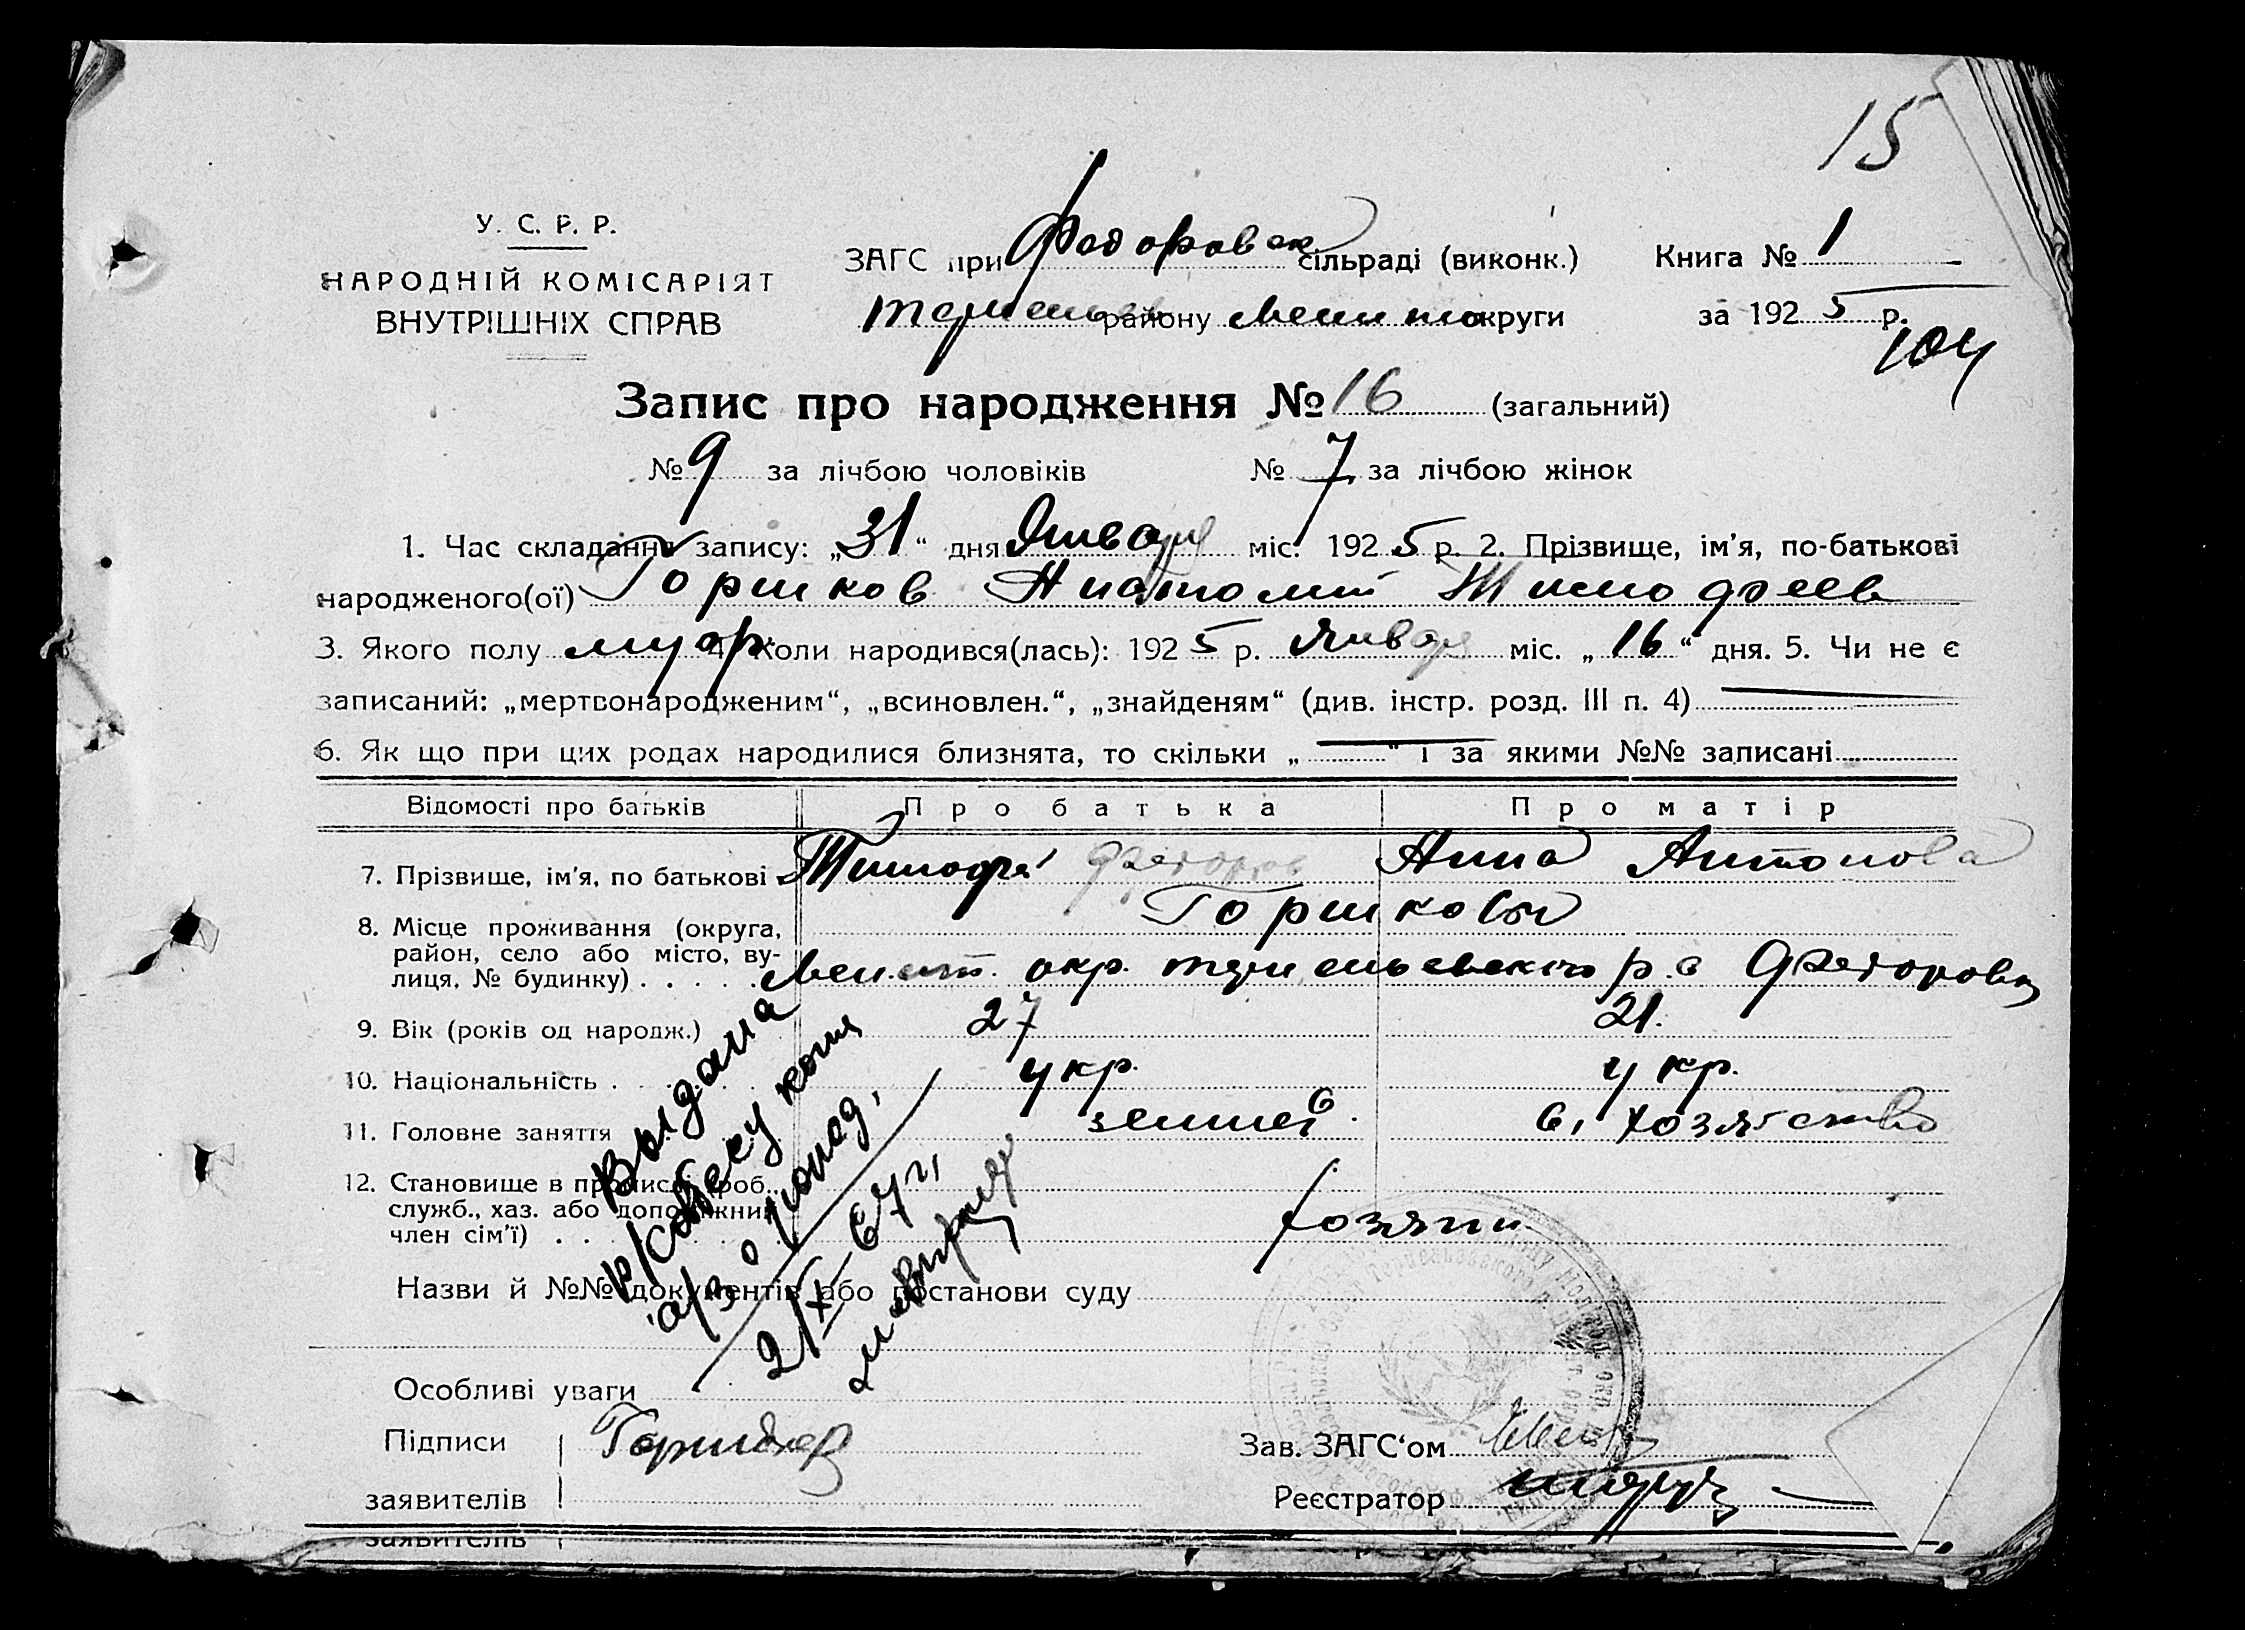 15
У. С. Р. Р.
НАРОДНІЙ КОМІСАРІЯТ
ВНУТРІШНІХ СПРАВ
ЗАГС при Федоровск сільраді (виконк.) Книга № 1
району Мелит округи за 1925 р.
104
Запис про народження № 16 (загальний)
№ 9 за лічбою чоловіків № 7 за лічбою жінок
1. Час складання запису: „31“ дня Января міс. 1925 р. 2. Прізвище, ім'я, по-батькові
народженого(ої) Горшков Анатолий Тимофеев
3. Якого полу муж 4. Коли народився(лась): 1925 р. Января міс. „16“ дня. 5. Чи не є
записаний: „мертвонародженим“, „всиновлен.“, „знайденям“ (див. інстр. розд. III п. 4)
6. Як що при цих родах народилися близнята, то скільки „ “ і за якими №№ записані
Відомості про батьків Про батька Про матір
7. Прізвище, ім'я, по батькові Тимофей Федоров Анна Антонова
Горшковы
8. Місце проживання (округа,
район, село або місто, ву-
лиця, № будинку) Мелит. окр. р. с Федоровка
9. Вік (років од народж.) 27 21.
10. Національність укр. укр.
11. Головне заняття землед. в, хозяйство
12. Становище в промислі (роб.,
служб., хаз. або допоміжний
член сім'ї) хозяин
Выдана
р/собесу копия
а/з о рожд.
21/X-67 г,
Назви й №№ документів або постанови суду
Особливі уваги
Підписи Горшков Зав. ЗАГС‘ом
заявителів Реєстратор
заявителів